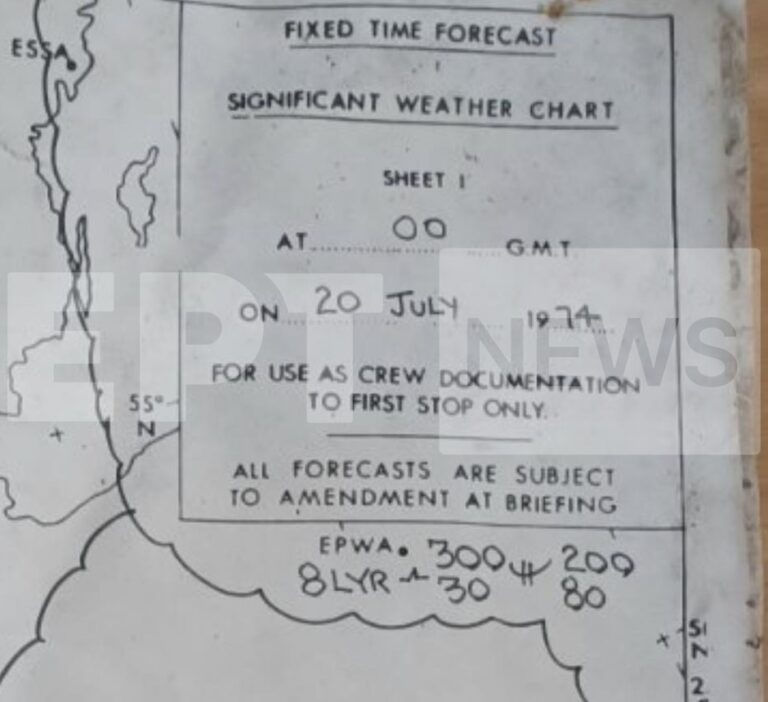 FIXED TIME FORECAST
ESSA
SIGNIFICANT WEATHER CHART
SHEET 1
AT 00 G.M.T.
ON 20 JULY 1974
EPT NEWS
FOR USE AS CREW DOCUMENTATION
55°
TO FIRST STOP ONLY.
N
ALL FORECASTS ARE SUBJECT
TO AMENDMENT AT BRIEFING
EPWA. 300 200
8LYR 30 80
51
N
2